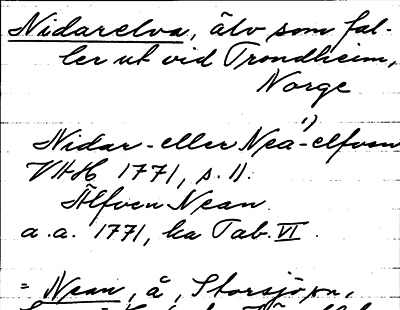 Nidarelva, älv som fal-
ler ut vid Trondheim,
Norge
1)
Nidar- eller Nea-elfven
VAH 1771, s. 11.
Älfven Nean
a.a. 1771, ka Tab. VI.
= Nean, å, Storsjö sn,